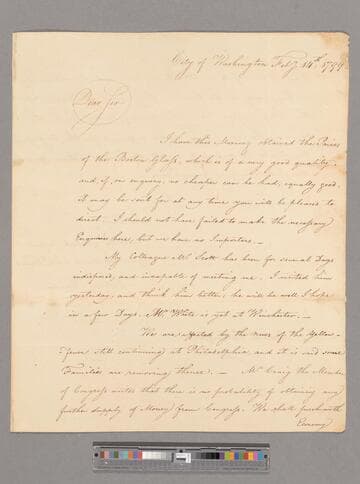 City of Washington Feby. 14th. 1799
Dear Sir
I have this Morning obtained the Prices
of the Boston Glass, which is of a very good quality,
and, if, on enquiry, no cheaper can be had, equally good.
it may be sent for at any time you will be pleased to
direct. I should not have failed to make the necessary
Enquiries here, but we have no Importers. —
My Colleague Mr. Scott has been for several Days
indisposed, and incapable of meeting me. I visited him
yesterday, and think him better, he will be well I hope
in a few Days. Mr. White is yet at Winchester. —
We are affected by the news of the Yellow-
Fever still continuing at Philadelphia, and it is said some
Families are removing thence. — Mr. Craig the Member
of Congress writes that there is no probability of obtaining any
further supply of Money from Congress. We shall